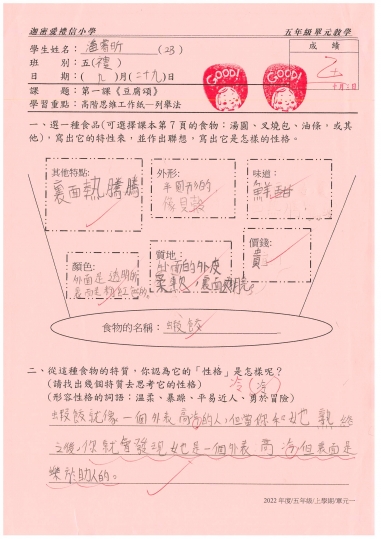 迦密愛禮信小學 五年級單元教學
學生姓名：潘 昕 (23) 成績
班 別：五(禮) 乙
日 期：(九)月(二十九)日
GOOD! GOOD!
課 題：第一課《豆腐頌》 十月三日
學習重點：高階思維工作紙—列舉法
一、選一種食品(可選擇課本第7頁的食物：湯圓、叉燒包、油條，或其
他)，寫出它的特性來，並作出聯想，寫出它是怎樣的性格。
其他特點: 外形: 味道：
裏面熱騰騰 半圓形的 鮮甜
價錢:
貴
顏色: 質地:
外面是透明的 外面的外皮
裏面是粉紅色的 柔軟，裏面
食物的名稱：蝦餃
二、從這種食物的特質，你認為它的「性格」是怎樣呢？
(請找出幾個特質去思考它的性格) 冷(冷)
(形容性格的詞語：溫柔、暴躁、平易近人、勇於冒險)
蝦餃就像一個外表高冷的人，但當你和她熟絡
之後，你就會發現她是一個外表高冷但裏面是
樂於助人的。
2022年度/五年級/上學期/單元一